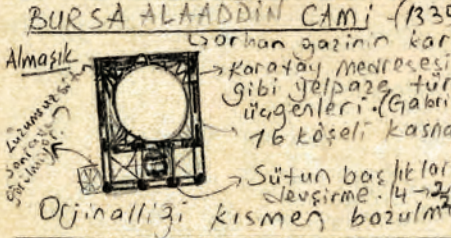 BURSA ALAADDİN CAMİ (133
Orhan gazinin kar
Almaşık
Karatay Medresesi
gibi yelpaze tür
üçgenleri. (Gabri
16 köşeli kasna
Lüzumsuz
sonra
Sütun başlıklar
devşirme.
Orjinalliği kısmen bozulm